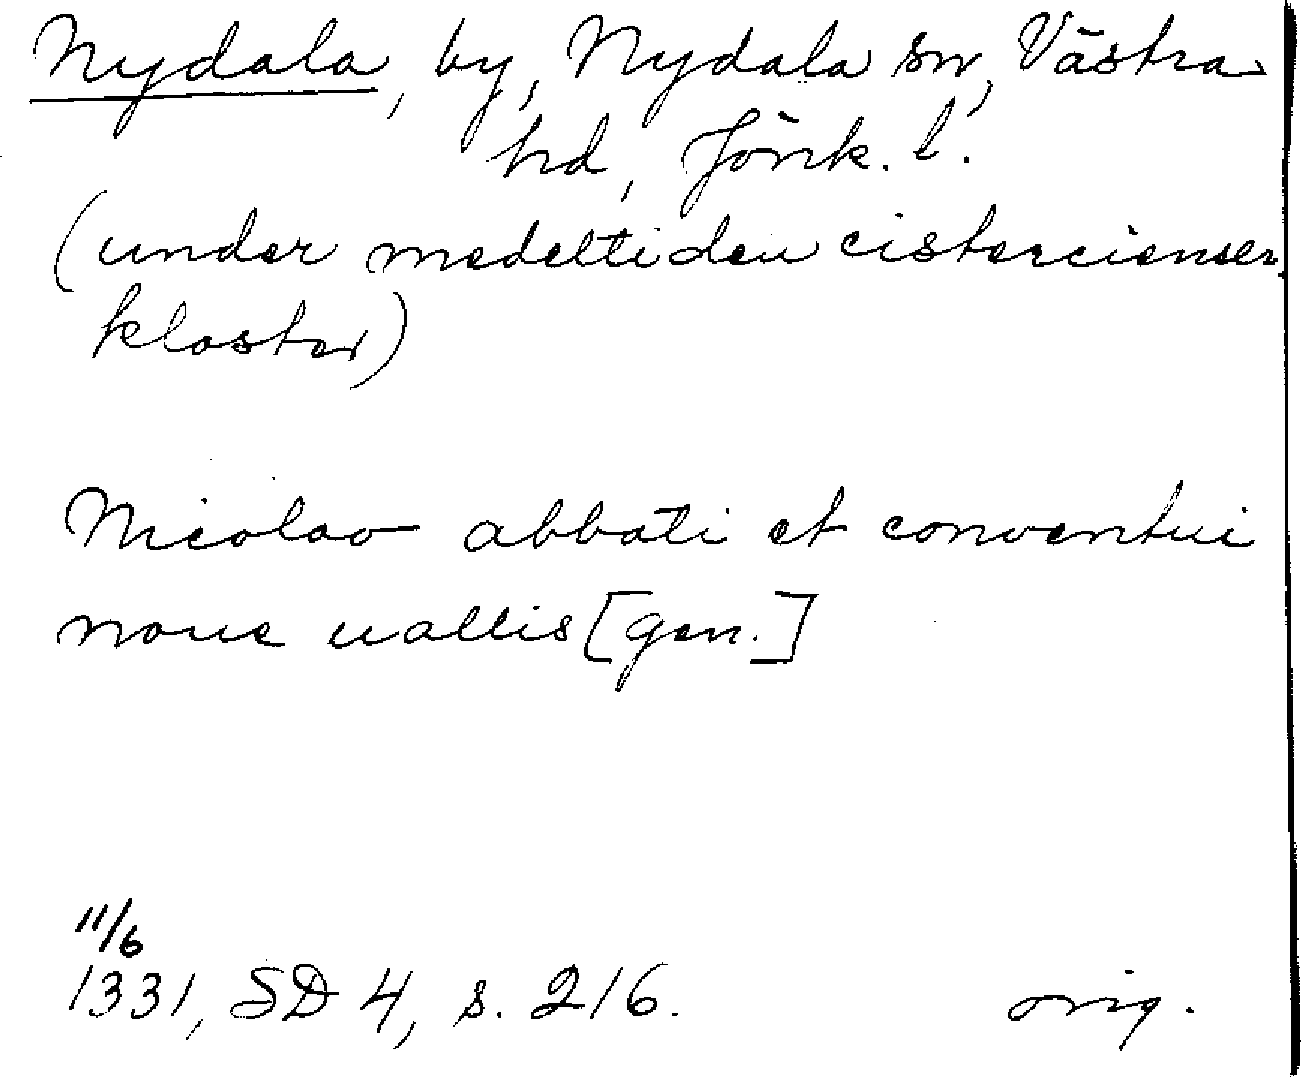 Nydala, by, Nydala sn, Västra
hd, Jönk. l.
(under medeltiden cistercienser
kloster)
Nicolao abbati et conventui
noue uallis [gen.]
11/6
1331, SD 4, s. 216. orig.